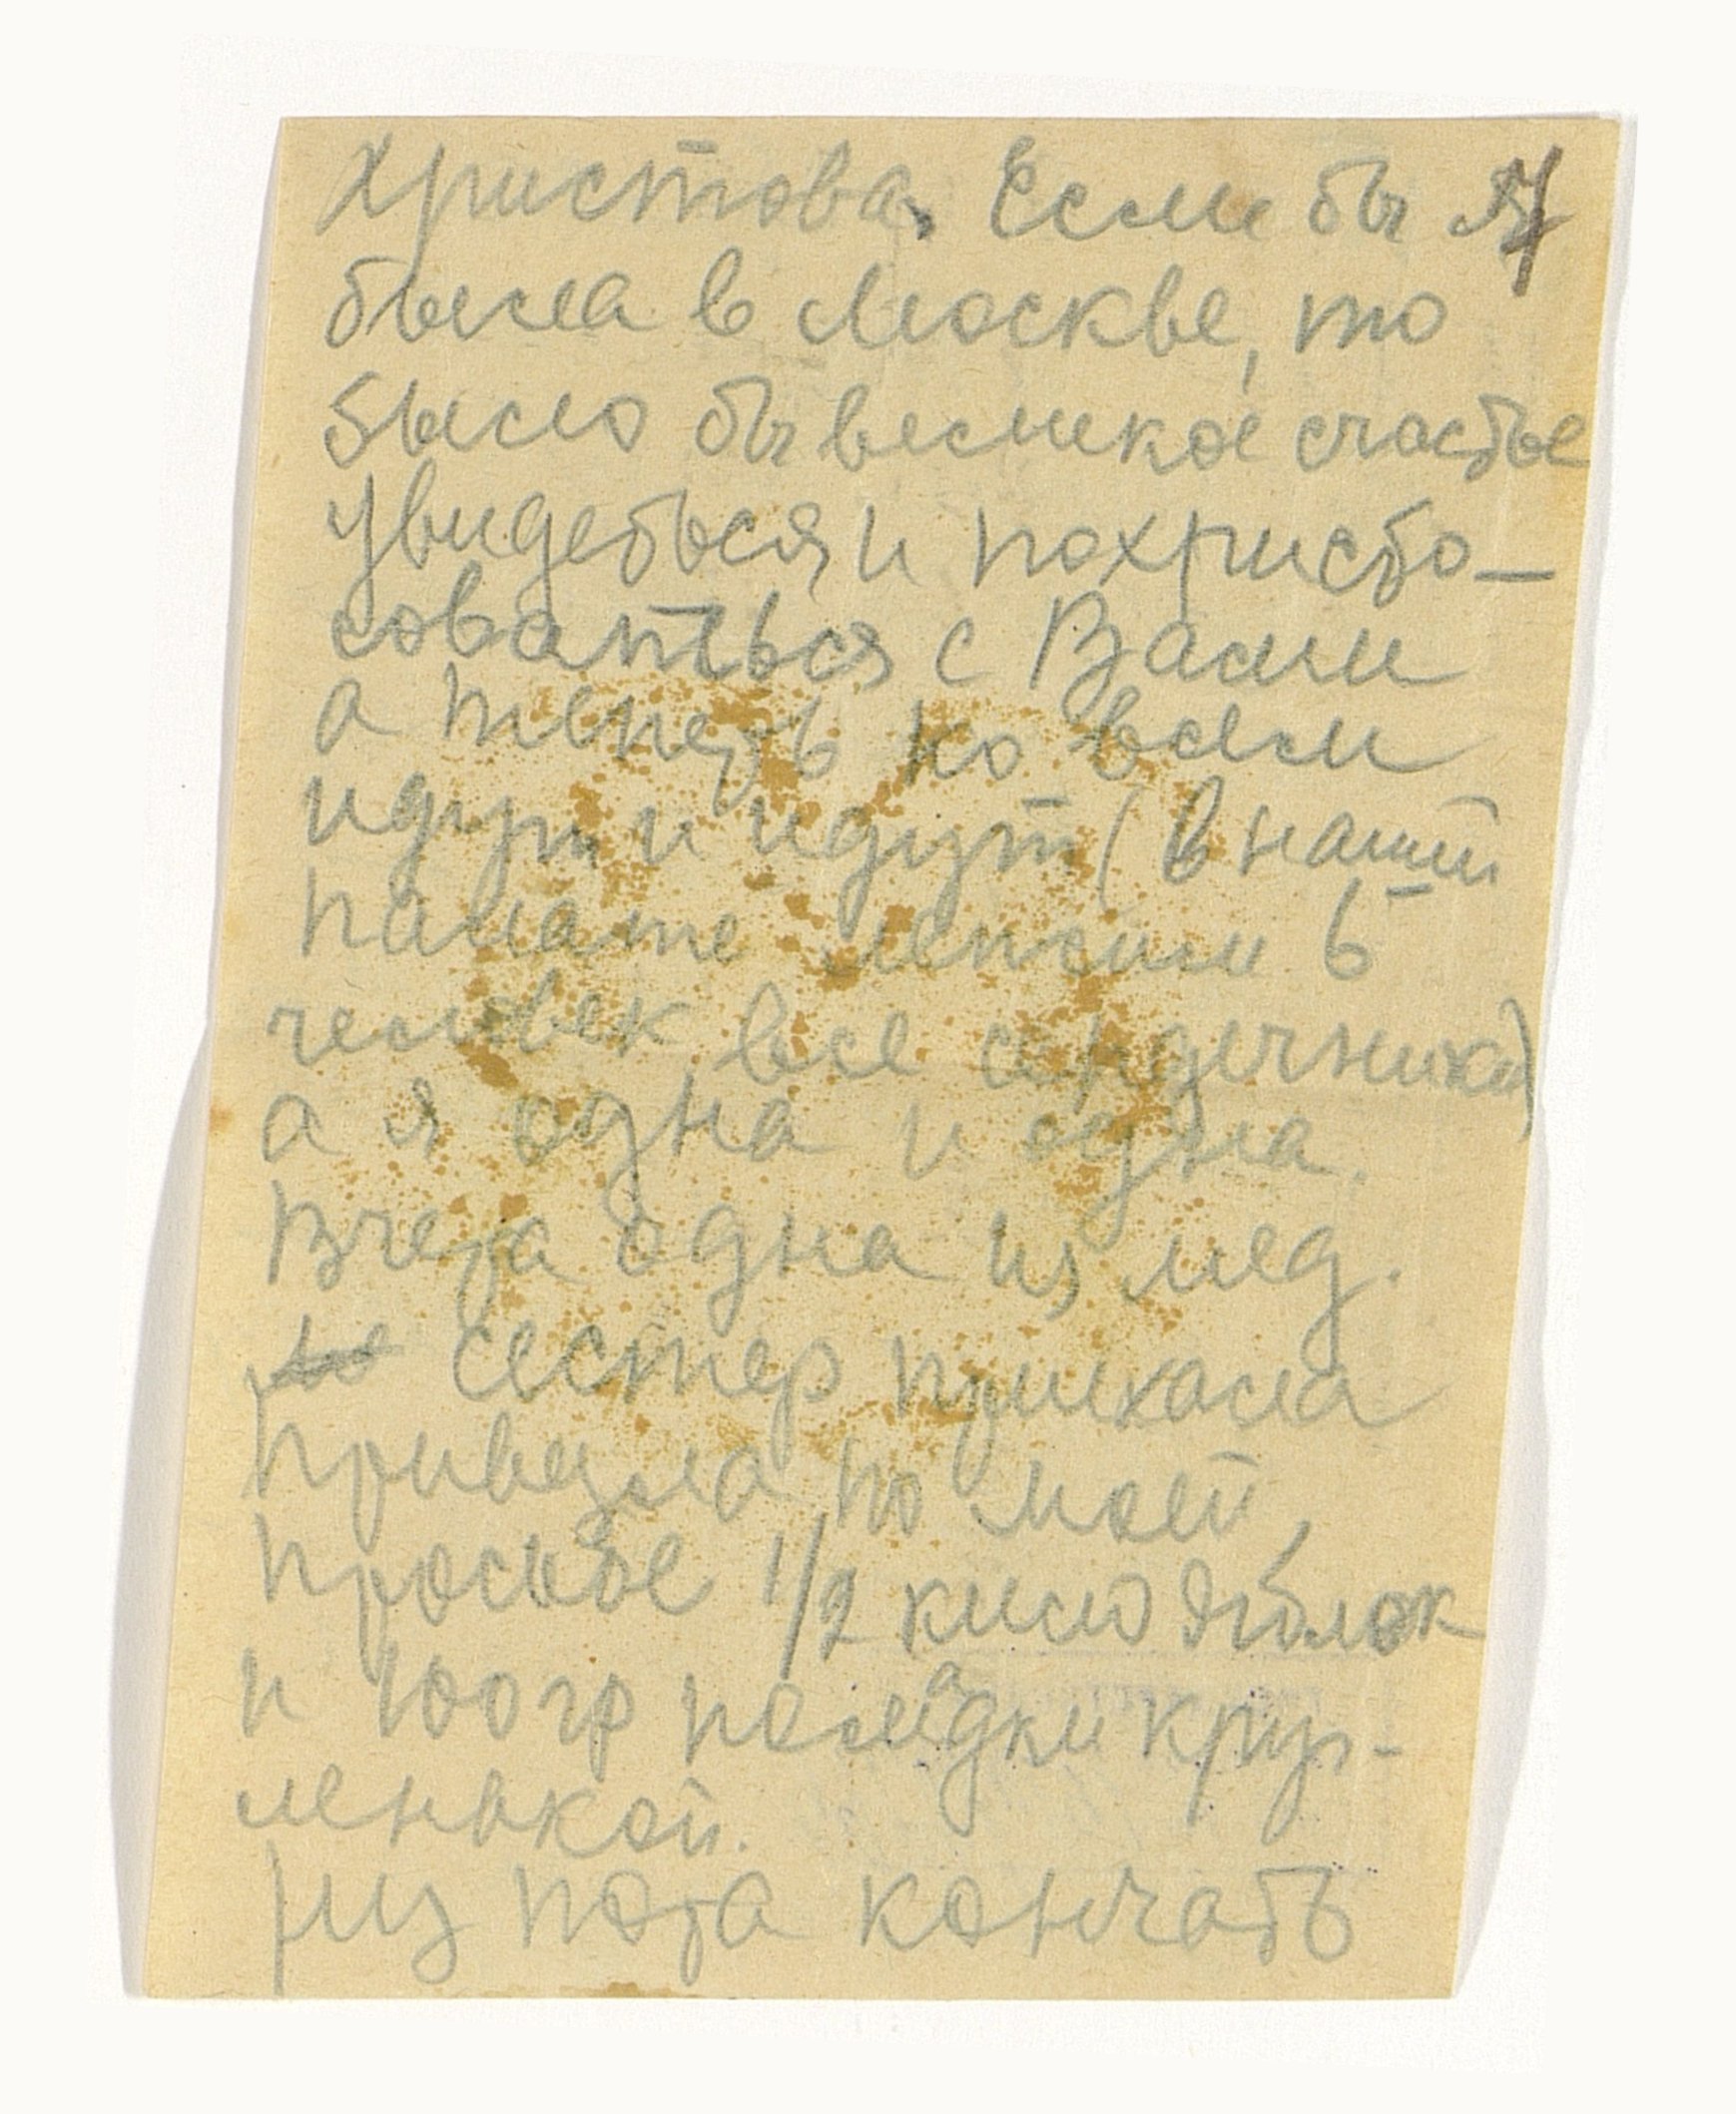 Христова. Если бы я 7
была в Москве, то
было бы великое счастье
увидеться и похристо-
соваться с Вами
а теперь ко всем
идут и идут (в нашей
палате лежим 6
человек все сердечники)
а я одна и одна.
Вчера одна из мед.
сестер приехала
привезла по моей
просьбе 1/2 кило яблок
и 100 гр помадки круг-
ленькой.
пора кончать